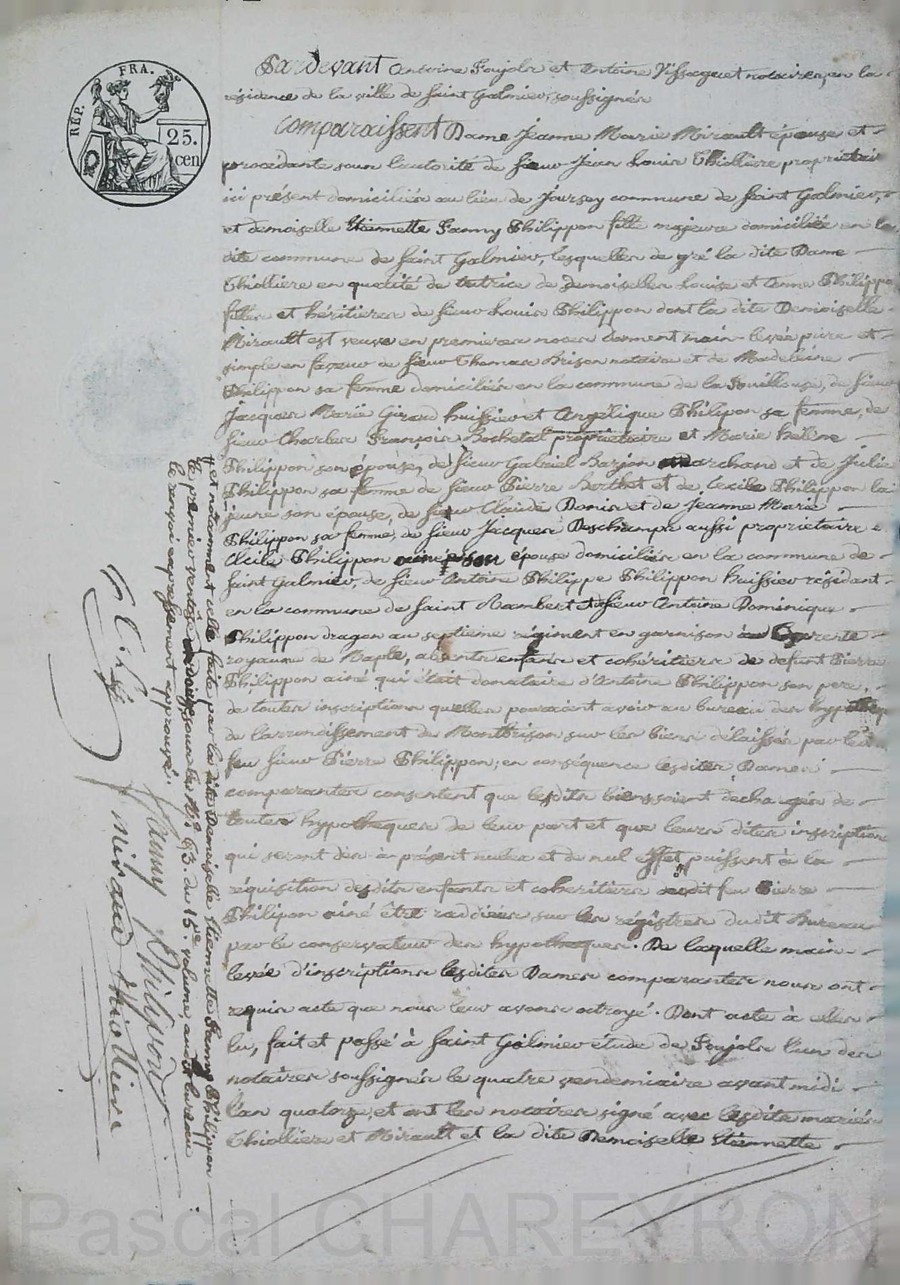 RÉP. FRA.
25.
cen
Pardevant Antoine Poujols et Antoine Vissaguet notaires, en la
résidence de la ville de Saint Galmier, soussignés
Comparaissent Dame Jeanne Marie Mirault épouse et
procédante sous l'autorité de sieur Jean Louis Thiollière propriétaire
ici présent domiciliés au lieu de Joursey commune de Saint Galmier,
et demoiselle Etiennette Fanny Philippon fille majeure domiciliée en la
dite commune de Saint Galmier, lesquelles de gré la dite Dame
Thiolliere en qualité de tutrice de Demoiselles Louise et Anne Philippon
filles et héritières de sieur Louis Philippon dont la dite Demoiselle
Mirault est veuve en premieres noces donnent main-levée pure et
simple en faveur de sieur Thomas Brison notaire et de Madeleine
Philippon sa femme domiciliés en la commune de la Fouillouse, de sieur
Jacques Marie Giraud huissier et Angélique Philipon sa femme, de
sieur Charles François Rochetal propriétaire et Marie hélène
Philippon son épouse, de sieur Gabriel Barjon marchand et de Julie
Philippon sa femme de sieur Pierre Berthet et de Cecile Philippon la
jeune son épouse, de sieur Claude Donis et de Jeanne Marie
Philippon sa femme, de sieur Jacques Deschamps aussi propriétaire et
Cécile Philippon ainée son épouse domiciliés en la commune de
Saint Galmier, de sieur Antoine Philippe Philippon huissier résidant
en la commune de Saint Rambert et sieur Antoine Dominique
Philippon dragon au septieme régiment en garnison à
royaume de Naple, absents enfans et cohéritiers de défunt Pierre
Philippon ainé qui était donataire d'Antoine Philippon son pere,
de toutes inscriptions quelles pouvaient avoir au bureau des hypothèques
de l'arrondissement de Montbrison sur les biens délaissés par ledit
feu sieur Pierre Philippon; en conséquence lesdites Dames
comparantes consentent que lesdits biens soient déchargés de
toutes hypotheques de leur part et que leurs dites inscriptions
qui seront dès à présent nulles et de nul effet, puissent à la
réquisition desdits enfants et cohéritiers dudit feu Pierre
Philipon ainé être radiées sur les régistres dudit bureau
par le conservateur des hypotheques. De laquelle main-
levée d'inscriptions lesdites Dames comparantes nous ont
requis acte que nous leur avons octroyé. Dont acte à elles
lu, fait et passé à Saint Galmier étude de Poujols l'un des
notaires soussignés le quatre vendemiaire avant midi
l'an quatorze, et ont les notaires signé avec lesdits mariés
Thiolliere et Mirault et la dite Demoiselle Etiennette
# et notamment celle faite par la dite Demoiselle Etiennette Fanny Philippon
le premier ventôse an douze, sous le N.º 63. du 15e volume, audit bureau
le renvoi expressement approuvé.
Fanny Philipond
miraud thiolliere
Pascal CHAREYRON